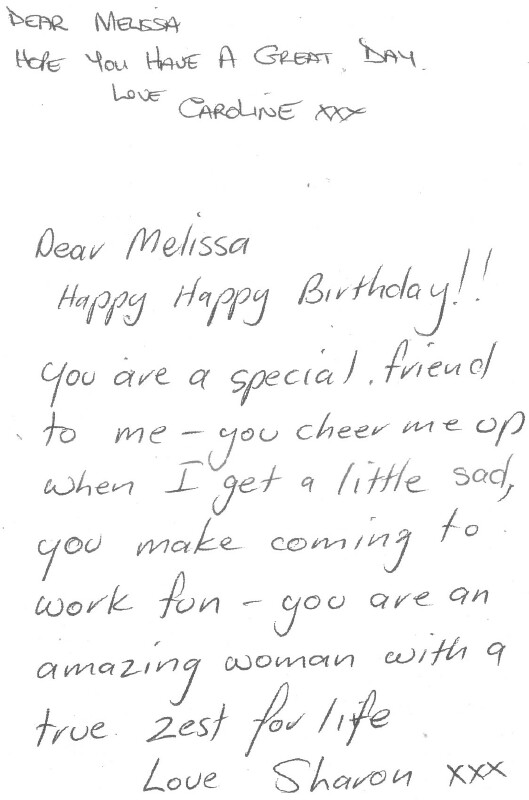 DEAR MELISSA
HOPE YOU HAVE A GREAT DAY.
LOVE
CAROLINE xxx
Dear Melissa
Happy Happy Birthday!!
you are a special friend
to me - you cheer me up
when I get a little sad,
you make coming to
work fun - you are an
amazing woman with a
true zest for life
Love Sharon xxx